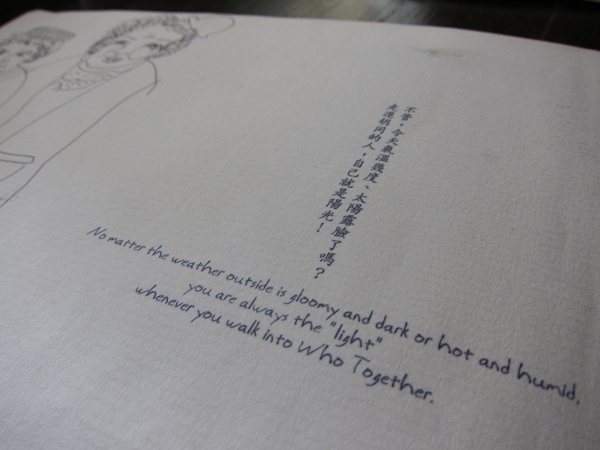 不管，今天氣溫幾度、太陽露臉了嗎？
走進胡同的人，自己就是陽光！
No matter the weather outside is gloomy and dark or hot and humid,
you are always the "light"
whenever you walk into Who Together.